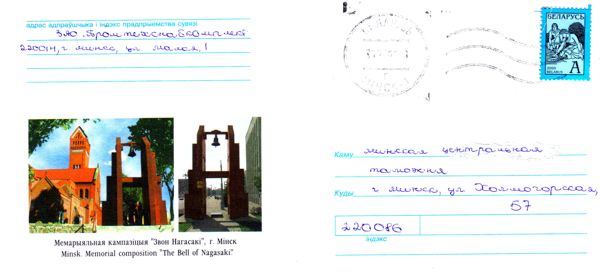 адрас адпраўшчыка і індэкс прадпрыемства сувязі
ЗАО "Промтехснабкомплект
г. минск, ул
БЕЛАРУСЬ
A
BELARUS
Мемарыяльная кампазіцыя "Звон Нагасакі", г. Мінск
Minsk. Memorial composition "The Bell of Nagasaki"
Каму минская центральная
таможня
Куды г минск, ул. Холмогорская,
57
220086
індэкс